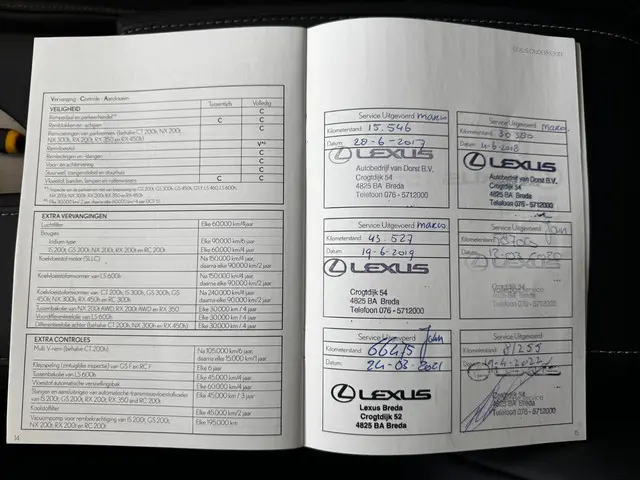 Vervanging - Controle - Aandraaien
Tussentijds
Volledig
VEILIGHEID
C
Rempedaal en parkeerhendel
C
Remblokken en -schijven
C
C
Remvoeringen van parkeerrem (behalve CT 200h, NX 200t,
NX 300h, RX 200t, RX 350 en RX 450h)
C
Remvloeistof
Remleidingen en -slangen
C
Voor- en achtervering
C
Stuurwiel, stangenstelsel en stuurhuis
C
Vloeistof, banden, lampen en ruitenwissers
C
C
EXTRA VERVANGINGEN
Luchtfilter
Elke 60.000 km/4 jaar
Bougies
Iridium-type
Elke 90.000 km/6 jaar
IS 200t, GS 200t, NX 200t, RX 200t en RC 200t
Elke 60.000 km/4 jaar
Koelvloeistof motor (SLLC)
Na 150.000 km/4 jaar,
daarna elke 90.000 km/2 jaar
Koelvloeistof omvormer van LS 600h
Na 150.000 km/4 jaar,
daarna elke 90.000 km/2 jaar
Koelvloeistof omvormer van CT 200h, IS 300h, GS 300h, GS
450h, NX 300h, RX 450h en RC 300h
Na 240.000 km/4 jaar,
daarna elke 90.000 km/2 jaar
Tussenbakolie van NX 200t AWD, RX 200t AWD en RX 350
Elke 30.000 km / 4 jaar
Voordifferentieelolie van LS 600h
Elke 30.000 km / 4 jaar
Differentieelolie achter (behalve CT 200h, NX 300h en RX 450h)
Elke 30.000 km / 4 jaar
EXTRA CONTROLES
Multi V-riem (behalve CT 200h)
Na 105.000 km/6 jaar,
daarna elke 15.000 km/1 jaar
Klepspeling (zintuiglijke inspectie) van GS F en RC F
Elke 6 jaar
Tussenbakolie van LS 600h
Elke 45.000 km / 4 jaar
Vloeistof automatische versnellingsbak
Elke 60.000 km / 4 jaar
Slangen en aansluitingen van automatische-transmissievloeistofkoeler
van IS 200t, GS 200t, RX 200t, RX 350 and RC 200t
Elke 45.000 km / 3 jaar
Koolstoffilter
Elke 45.000 km / 2 jaar
Vacuümpomp voor rembekrachtiging van IS 200t, GS 200t,
NX 200t, RX 200t en RC 200t
Elke 195.000 km
14
LEXUS ONDERHOUD
Service Uitgevoerd marco
Kilometerstand: 15.546
Datum: 28-6-2017
LEXUS
Autobedrijf van Dorst B.V.
Crogtdijk 54
4825 BA Breda
Telefoon 076 - 5712000
Service Uitgevoerd marco
Kilometerstand: 30500
Datum: 4-6-2018
LEXUS
Autobedrijf van Dorst B.V.
Crogtdijk 54
4825 BA Breda
Telefoon 076 - 5712000
Service Uitgevoerd marco
Kilometerstand: 45.527
Datum: 19-6-2019
LEXUS
Crogtdijk 54
4825 BA Breda
Telefoon 076 - 5712000
Service Uitgevoerd John
Kilometerstand
Datum
Service Uitgevoerd John
Kilometerstand 66475
Datum: 24-08-2021
LEXUS
Lexus Breda
Crogtdijk 52
4825 BA Breda
Service Uitgevoerd
Kilometerstand
Datum
4825 BA Breda
Telefoon 076 - 5712000
15